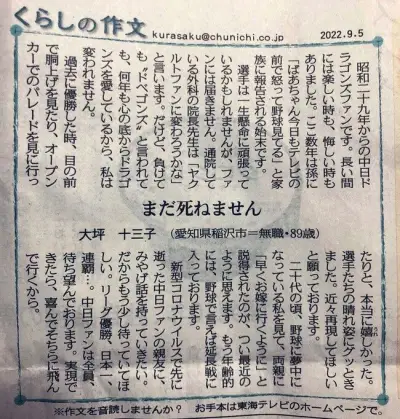 くらしの作文
kurasaku@chunichi.co.jp
2022.9.5
まだ死ねません
大坪　十三子　(愛知県稲沢市＝無職・89歳)
昭和二十九年からの中日ド
ラゴンズファンです。長い間
には楽しい時も、悔しい時も
ありました。ここ数年は孫に
「ばあちゃん今日もテレビの
前で怒って野球見てる」と家
族に報告される始末です。
選手は一生懸命に頑張って
いるかもしれませんが、ファ
ンには届きません。通院して
いる外科の院長先生は「ヤク
ルトファンに変わろうかな」
と言います。だけど、負けて
も〝ドベゴンズ〟と言われて
も、何年も心の底からドラゴ
ンズを愛しているから、私は
変われません。
過去に優勝した時、目の前
で胴上げを見たり、オープン
カーでのパレードを見に行っ
たりと、本当に嬉しかった。
選手たちの晴れ姿にグッとき
ました。近々再現してほしい
と願っております。
二十代の頃、野球に夢中に
なっている私を見て、両親に
「早くお嫁に行くように」と
説得されたのが、つい最近の
ように思えます。もう年齢的
には、野球で言えば延長戦に
入っております。
新型コロナウイルスで先に
逝った中日ファンの親友に、
みやげ話を持っていきたい。
だからもう少し待っていてほ
しい。リーグ優勝、日本一、
連覇…。中日ファンは全員、
待ち望んでおります。実現で
きたら、喜んでそちらに飛ん
で行くから。
※作文を音読しませんか？　お手本は東海テレビのホームページで。